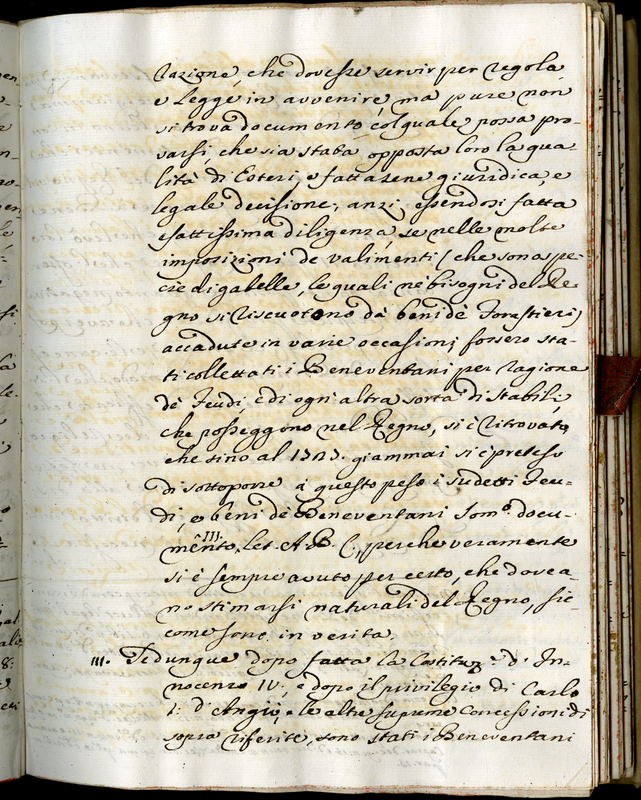 razione, che dovesse servir per regola
e Legge in avvenire, ma pure non
si trova documento col quale possa pro-
varsi, che sia stata opposta loro la qua
lità di Esteri, e fattasene giuridica, e
legale decisione; anzi essendosi fatta
esattissima diligenza, se nelle molte
imposizioni de valimenti (che sono spe-
cie di gabelle, le quali ne bisogni del Re
gno si riscuotono da beni de Forastieri)
accadute in varie occasioni, fossero sta-
ti collettati i Beneventani per ragione
de Feudi, e di ogni altra sorta di stabili,
che posseggono nel Regno, si è ritrovato,
che sino al giammai si è preteso
di sottoporre a questo peso i sudetti Feu-
di, e beni de Beneventani Som.º docu-
III.
mento, let. A. B. C., perche veramente
si è sempre avuto per certo, che dovea-
no stimarsi naturali del Regno, sic-
come sono in verità.
III. Se dunque dopo fatta la Costituz.e d' In-
nocenzo IV, e dopo il privilegio di Carlo
I: d' Angiò, e le altre supreme Concessioni di
sopra riferite, sono stati i Beneventani